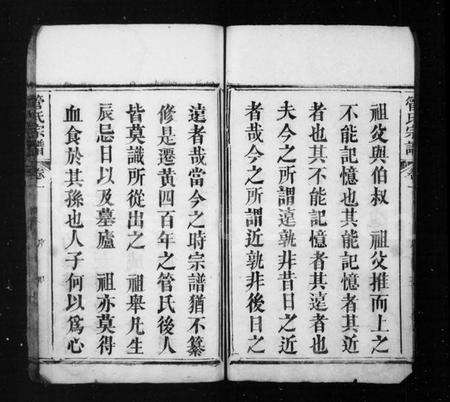 管氏宗譜
卷一
祖父與伯叔　祖父推而上之
不能記憶也其能記憶者其近
者也其不能記憶者其遠者也
夫今之所謂遠孰非昔日之近
者哉今之所謂近孰非後日之
遠者哉當今之時宗譜猶不纂
修是遷黃四百年之管氏後人
皆莫識所從出之　祖舉凡生
辰忌日以及墓廬　祖亦莫得
血食於其孫也人子何以爲心
管氏宗譜
卷一